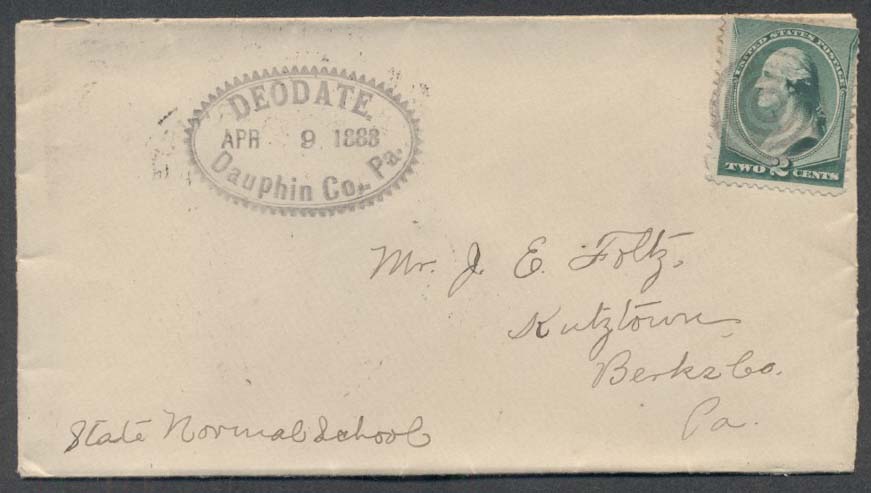 DEODATE.
APR 9 1888
Dauphin Co., Pa.
UNITED STATES POSTAGE
TWO 2 CENTS
Mr. J. E. Foltz,
Kutztown
Berks Co.
Pa.
State Normal School